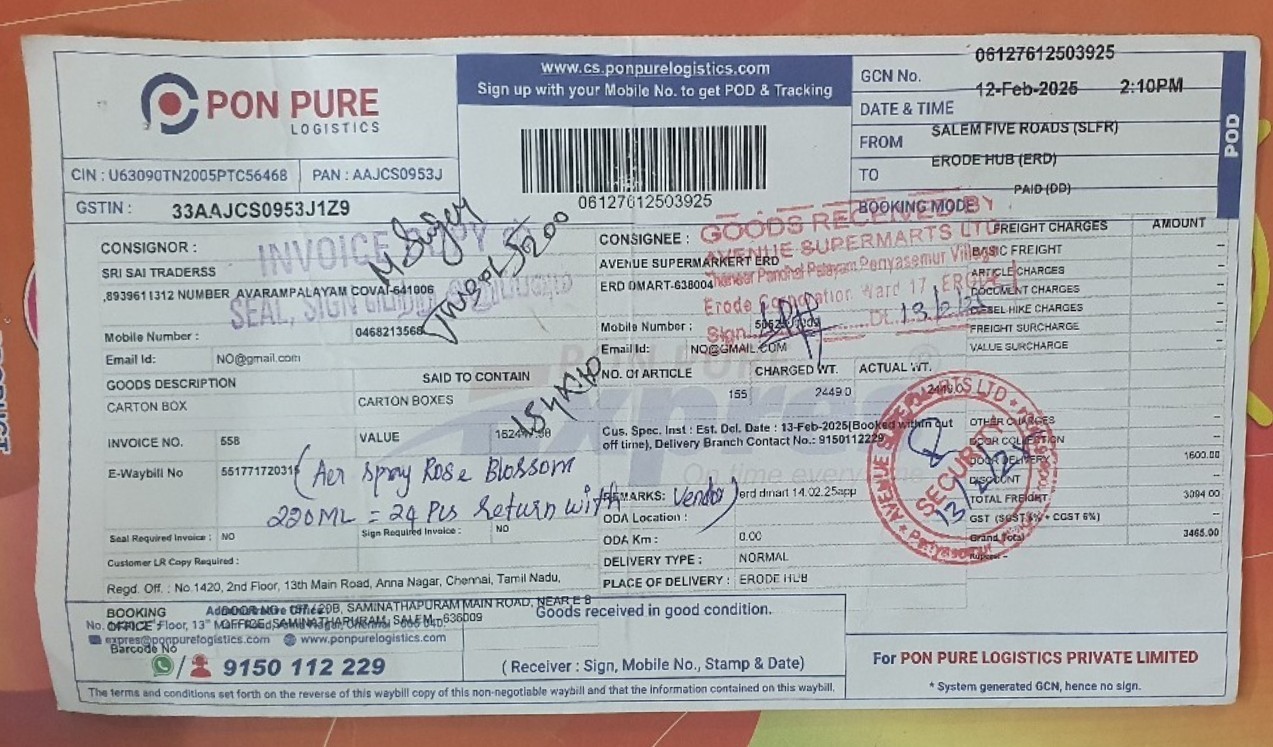 PON PURE
LOGISTICS
CIN : U63090TN2005PTC56468
PAN : AAJCS0953J
GSTIN : 33AAJCS0953J1Z9
www.cs.ponpurelogistics.com
Sign up with your Mobile No. to get POD & Tracking
06127612503925
GCN No. 06127612503925
DATE & TIME 12-Feb-2025 2:10PM
FROM SALEM FIVE ROADS (SLFR)
TO ERODE HUB (ERD)
BOOKING MODE PAID (DD)
POD
CONSIGNOR :
SRI SAI TRADERSS
,8939611312 NUMBER AVARAMPALAYAM COVAI-641006
Mobile Number : 0468213568
Email Id: NO@gmail.com
INVOICE COPY
SEAL, SIGN
CONSIGNEE :
AVENUE SUPERMARKERT ERD
ERD DMART-638004
Mobile Number :
Email Id: NO@GMAIL.COM
GOODS RECEIVED BY
AVENUE SUPERMARTS LTD
Periyasemur Village
Erode Corporation Ward 17, ERODE
Sign. Dt. 13/2/25
GOODS DESCRIPTION
SAID TO CONTAIN
CARTON BOX
CARTON BOXES
NO. Of ARTICLE CHARGED WT. ACTUAL WT.
155 2449.0 2449.0
INVOICE NO. 558
VALUE
E-Waybill No
(Aer Spray Rose Blossom
220ML = 24 Pcs Return with Vendor)
Seal Required Invoice : NO
Sign Required Invoice : NO
Customer LR Copy Required :
Cus. Spec. Inst : Est. Del. Date : 13-Feb-2025(Booked within cut
off time), Delivery Branch Contact No.: 9150112229
PON PURE
Express
On time every time
REMARKS: erd dmart 14.02.25app
ODA Location :
ODA Km : 0.00
DELIVERY TYPE : NORMAL
PLACE OF DELIVERY : ERODE HUB
FREIGHT CHARGES AMOUNT
BASIC FREIGHT –
ARTICLE CHARGES –
DOCUMENT CHARGES –
DIESEL HIKE CHARGES –
FREIGHT SURCHARGE –
VALUE SURCHARGE –
OTHER CHARGES –
DOOR COLLECTION –
DOOR DELIVERY 1600.00
DISCOUNT –
TOTAL FREIGHT 3094.00
GST (SGST 6% + CGST 6%) –
Grand Total 3465.00
Rupees –
AVENUE SUPERMARTS LTD
SECURITY
13/2/25
Regd. Off. : No.1420, 2nd Floor, 13th Main Road, Anna Nagar, Chennai, Tamil Nadu,
BOOKING
OFFICE
SAMINATHAPURAM MAIN ROAD, NEAR E B
OFFICE, SAMINATHAPURAM, SALEM - 636009
expres@ponpurelogistics.com www.ponpurelogistics.com
Barcode No
9150 112 229
Goods received in good condition.
( Receiver : Sign, Mobile No., Stamp & Date)
For PON PURE LOGISTICS PRIVATE LIMITED
* System generated GCN, hence no sign.
The terms and conditions set forth on the reverse of this waybill copy of this non-negotiable waybill and that the information contained on this waybill.